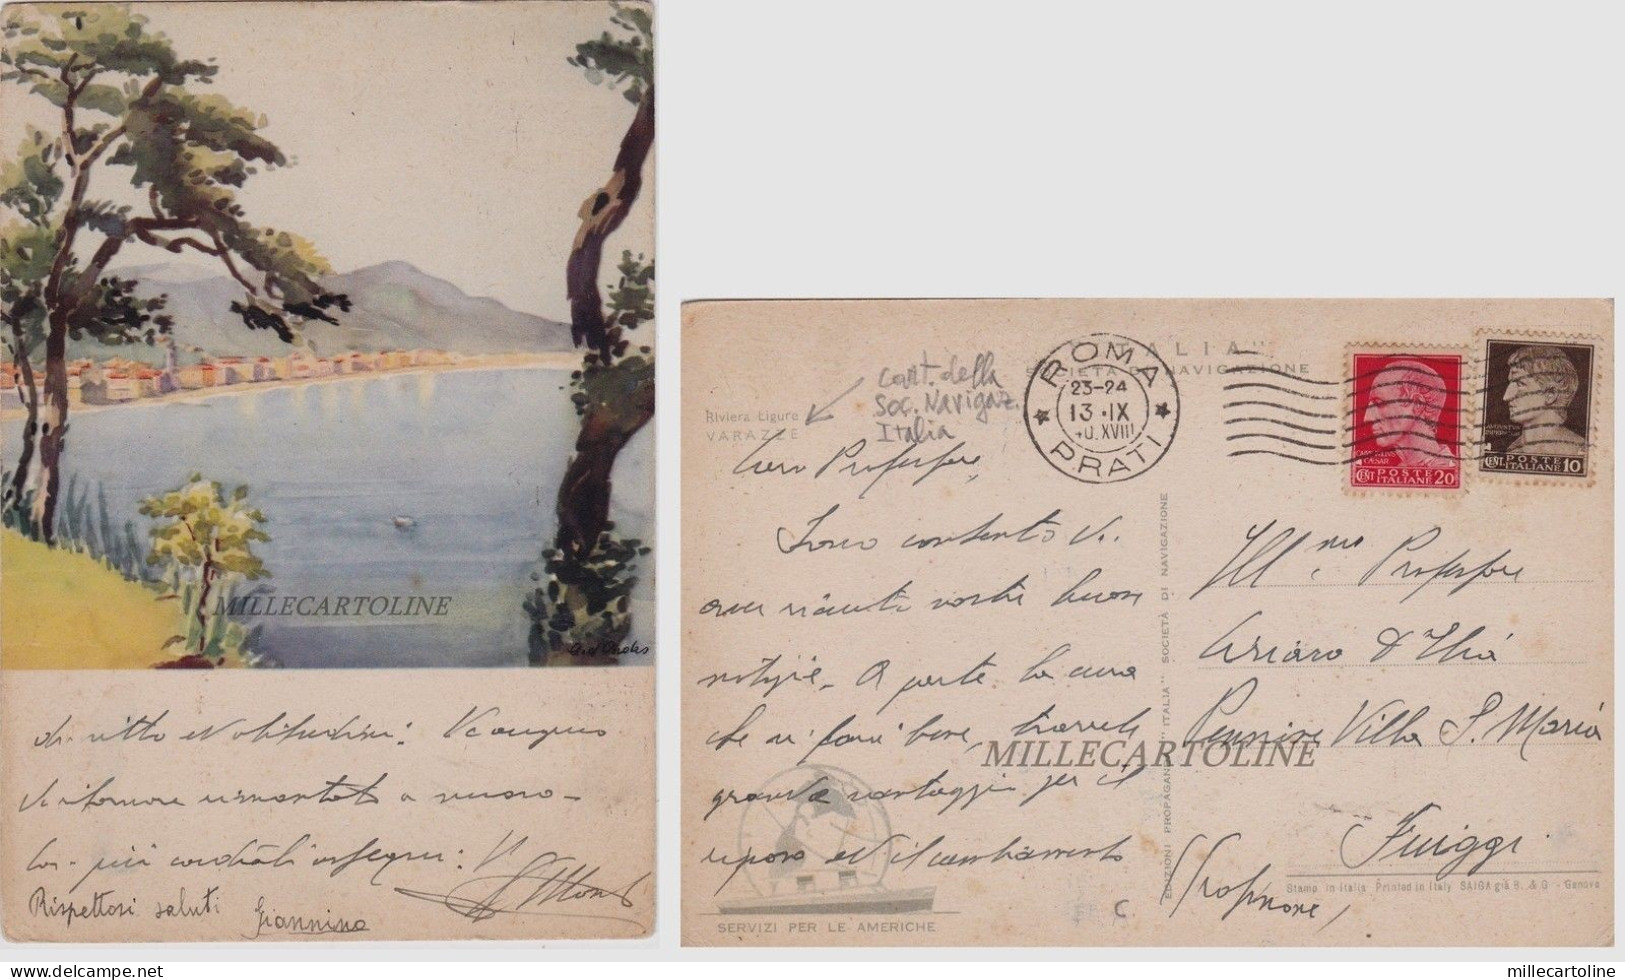 MILLECARTOLINE
di vitto ed abitudini: Vi auguro
di ritornare a nuovo
con più cordiali ossequi: V
Rispettosi saluti Giannino
"ITALIA"
SOCIETÀ DI NAVIGAZIONE
cart. della
Soc. Navigaz.
Italia
Riviera Ligure
VARAZZE
ROMA
23-24
13 · IX
40. XVIII
PRATI
CENT POSTE ITALIANE 20
CENT POSTE ITALIANE 10
Caro Professore,
Sono contento di
aver ricevuto vostre buone
notizie. A parte la cura
che vi farà bene, trarrete
grande vantaggio per il
riposo ed il cambiamento
EDIZIONI PROPAGANDA "ITALIA" SOCIETÀ DI NAVIGAZIONE
Ill.mo Professore
d'Elia
Pensione Villa S. Maria
Fiuggi
(Frosinone)
MILLECARTOLINE
SERVIZI PER LE AMERICHE
C
Stamp. in Italia Printed in Italy SAIGA già B. & G - Genova
delcampe.net
millecartoline